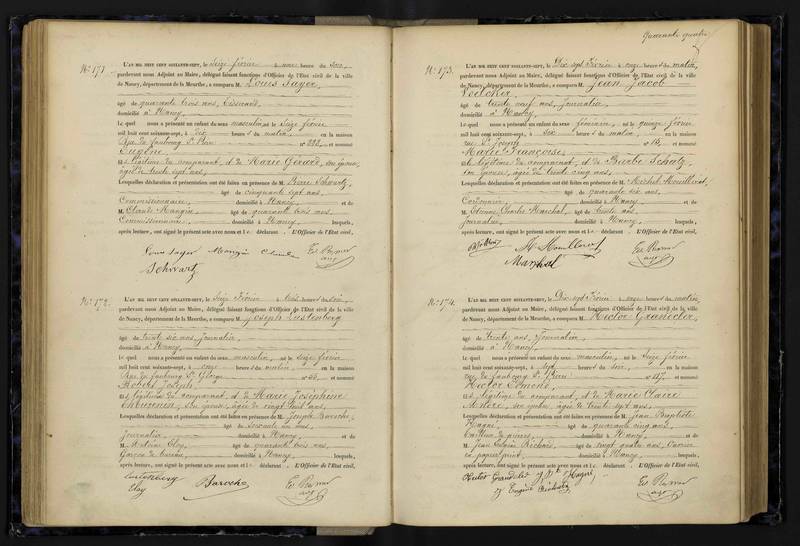 Quarante quatre
N.º 171.
L'AN MIL HUIT CENT SOIXANTE-SEPT, le Seize février à une heure du soir,
pardevant nous Adjoint au Maire, délégué faisant fonctions d'Officier de l'Etat civil de la ville
de Nancy, département de la Meurthe, a comparu M. Louis Sayer,
âgé de quarante trois ans, Tisserand,
domicilié à Nancy,
Le quel nous a présenté un enfant du sexe masculin, né le Seize février
mil huit cent soixante-sept, à dix heures du matin, en la maison
Rue du faubourg St Pierre n.º 222, et nommé
Eugène
fils légitime du comparant, et de Marie Gérard, son épouse,
âgée de trente sept ans,
Lesquelles déclaration et présentation ont été faites en présence de M. Pierre Schwartz,
âgé de cinquante sept ans,
Commissionnaire, domicilié à Nancy, et de
M. Claude Mangin âgé de quarante trois ans,
Commissionnaire, domicilié à Nancy, lesquels,
après lecture, ont signé le présent acte avec nous et le déclarant. L'Officier de l'Etat civil,
Louis Sayer Mangin Claude
Schwartz
N.º 172.
L'AN MIL HUIT CENT SOIXANTE-SEPT, le Seize Février à trois heures du soir,
pardevant nous Adjoint au Maire, délégué faisant fonctions d'Officier de l'Etat civil de la ville
de Nancy, département de la Meurthe, a comparu M. Joseph Lustenberg
âgé de trente six ans, Journalier,
domicilié à Nancy,
Le quel nous a présenté un enfant du sexe masculin, né le Seize février
mil huit cent soixante-sept, à onze heures du matin, en la maison
Rue du faubourg St n.º 55, et nommé
Robert Joseph,
fils légitime du comparant, et de Marie Joséphine
son épouse, âgée de vingt huit ans,
Lesquelles déclaration et présentation ont été faites en présence de M. Joseph Baroche,
âgé de soixante un ans,
Journalier, domicilié à Nancy, et de
M. Antoine Elay, âgé de quarante trois ans,
Garçon de bureau, domicilié à Nancy, lesquels,
après lecture, ont signé le présent acte avec nous et le déclarant. L'Officier de l'Etat civil,
Lustenberg
Elay Baroche
N.º 173.
L'AN MIL HUIT CENT SOIXANTE-SEPT, le Dix sept Février à onze heures du matin,
pardevant nous Adjoint au Maire, délégué faisant fonctions d'Officier de l'Etat civil de la ville
de Nancy, département de la Meurthe, a comparu M. Jean Jacob
Voelcker,
âgé de trente neuf ans, Journalier,
domicilié à Nancy,
Le quel nous a présenté un enfant du sexe féminin, né le quinze février
mil huit cent soixante-sept, à six heures du matin, en la maison
rue St Joseph n.º 12, et nommé
Marie Françoise,
fille légitime du comparant, et de Barbe Schatz,
son épouse, âgée de trente cinq ans,
Lesquelles déclaration et présentation ont été faites en présence de M. Michel Mouillerat,
âgé de quarante six ans,
Cordonnier, domicilié à Nancy, et de
M. Etienne Charles Marchal, âgé de trente ans,
Journalier, domicilié à Nancy, lesquels,
après lecture, ont signé le présent acte avec nous et le déclarant. L'Officier de l'Etat civil,
M. Mouillerat
Marchal
N.º 174.
L'AN MIL HUIT CENT SOIXANTE-SEPT, le Dix sept Février à onze heures du matin,
pardevant nous Adjoint au Maire, délégué faisant fonctions d'Officier de l'Etat civil de la ville
de Nancy, département de la Meurthe, a comparu M. Hector
âgé de trente ans, Journalier,
domicilié à Nancy,
Le quel nous a présenté un enfant du sexe masculin, né le Seize février
mil huit cent soixante-sept, à sept heures du soir, en la maison
rue du faubourg St Pierre n.º 117, et nommé
Hector Edmond,
fils légitime du comparant, et de Marie Claire
son épouse, âgée de trente sept ans,
Lesquelles déclaration et présentation ont été faites en présence de M. Jean Baptiste
Hagni, âgé de quarante cinq ans,
Tailleur de pierres, domicilié à Nancy, et de
M. Jean Eugène âgé de vingt quatre ans, Ouvrier
en papier peint, domicilié à Nancy, lesquels,
après lecture, ont signé le présent acte avec nous et le déclarant. L'Officier de l'Etat civil,
Hector J. Bte Hagni
J. Eugène